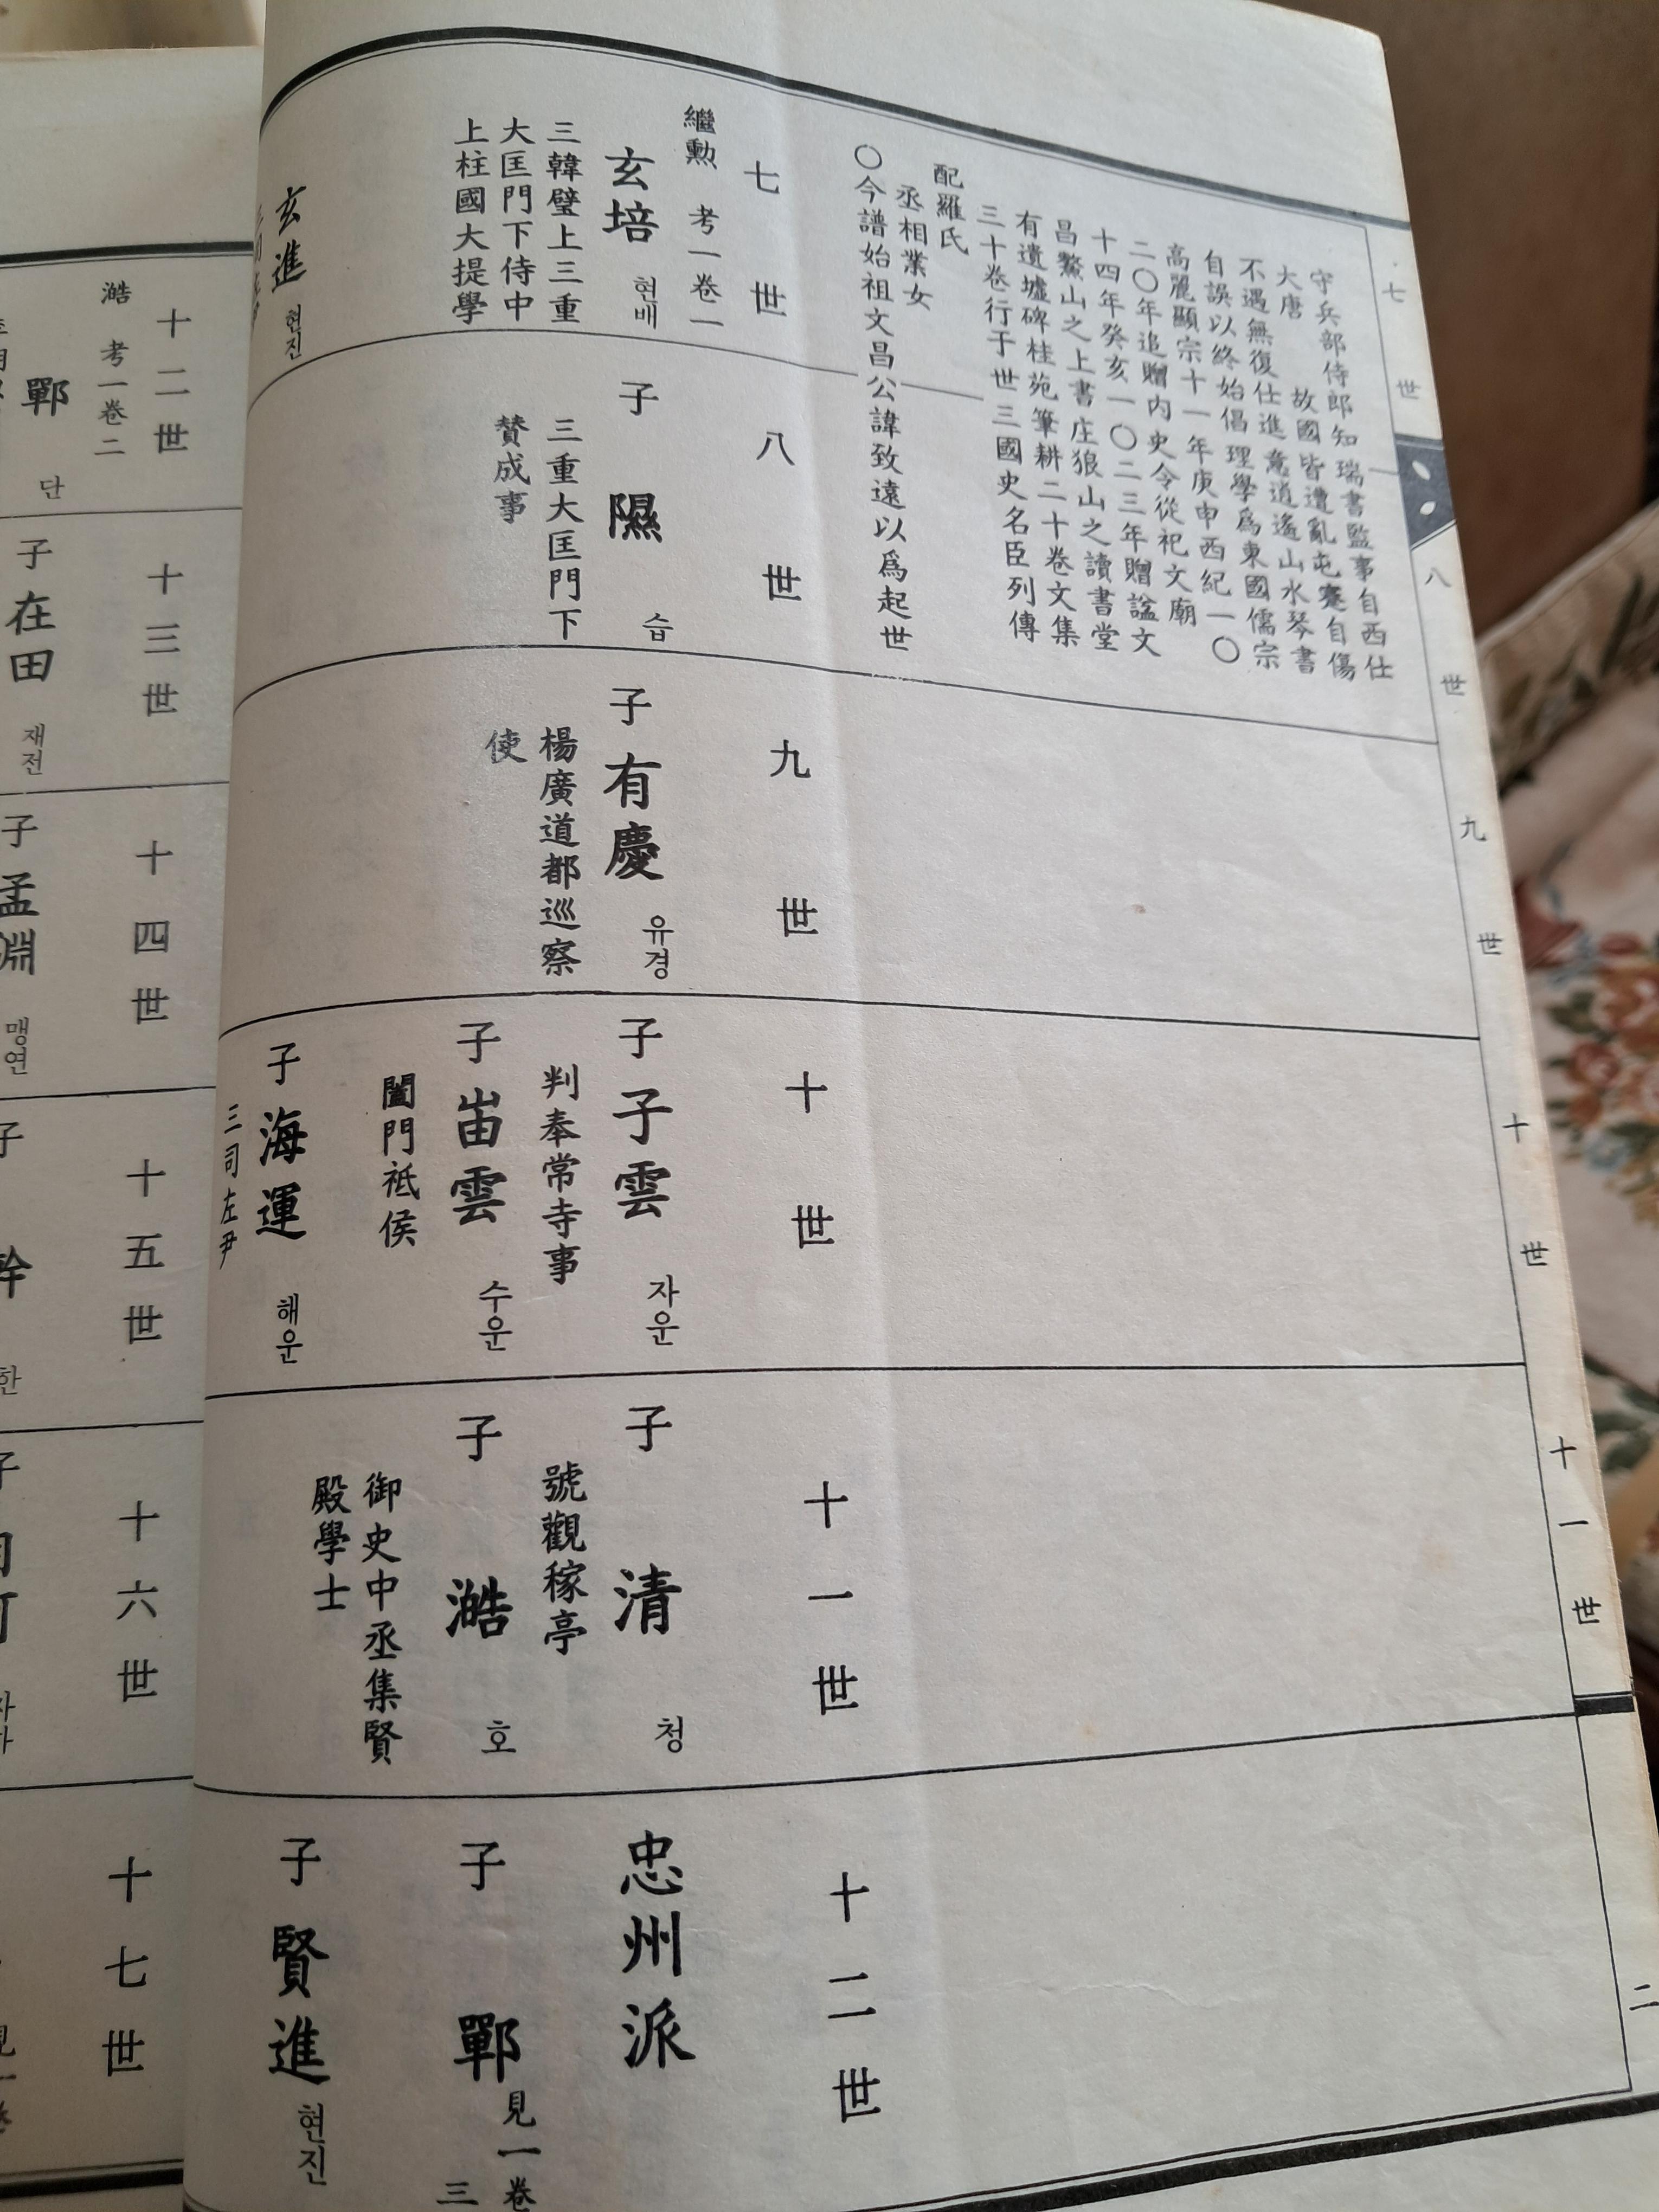 七世
八世
九世
十世
十一世
二
守兵部侍郎知瑞書監事自西仕
大唐 故國皆遭亂屯蹇自傷
不遇無復仕進意逍遙山水琴書
自誤以終始倡理學爲東國儒宗
高麗顯宗十一年庚申西紀一〇
二〇年追贈內史令從祀文廟
十四年癸亥一〇二三年贈諡文
昌鰲山之上書庄狼山之讀書堂
有遺墟碑桂苑筆耕二十卷文集
三十卷行于世三國史名臣列傳
配羅氏
丞相業女
〇今譜始祖文昌公諱致遠以爲起世
七世
繼勳 考一卷一
玄培 현배
三韓璧上三重
大匡門下侍中
上柱國大提學
玄進 현진
八世
子 隰 습
三重大匡門下
賛成事
九世
子 有慶 유경
楊廣道都巡察
使
十世
子 子雲 자운
判奉常寺事
子 峀雲 수운
閤門祗侯
子 海運 해운
三司左尹
十一世
子 清 청
號觀稼亭
子 澔 호
御史中丞集賢
殿學士
十二世
忠州派
子 鄲 見一卷
三
子 賢進 현진
十二世
澔 考一卷二
鄲 단
十三世
子 在田 재전
十四世
子 孟淵 맹연
十五世
子 幹 한
十六世
子
十七世